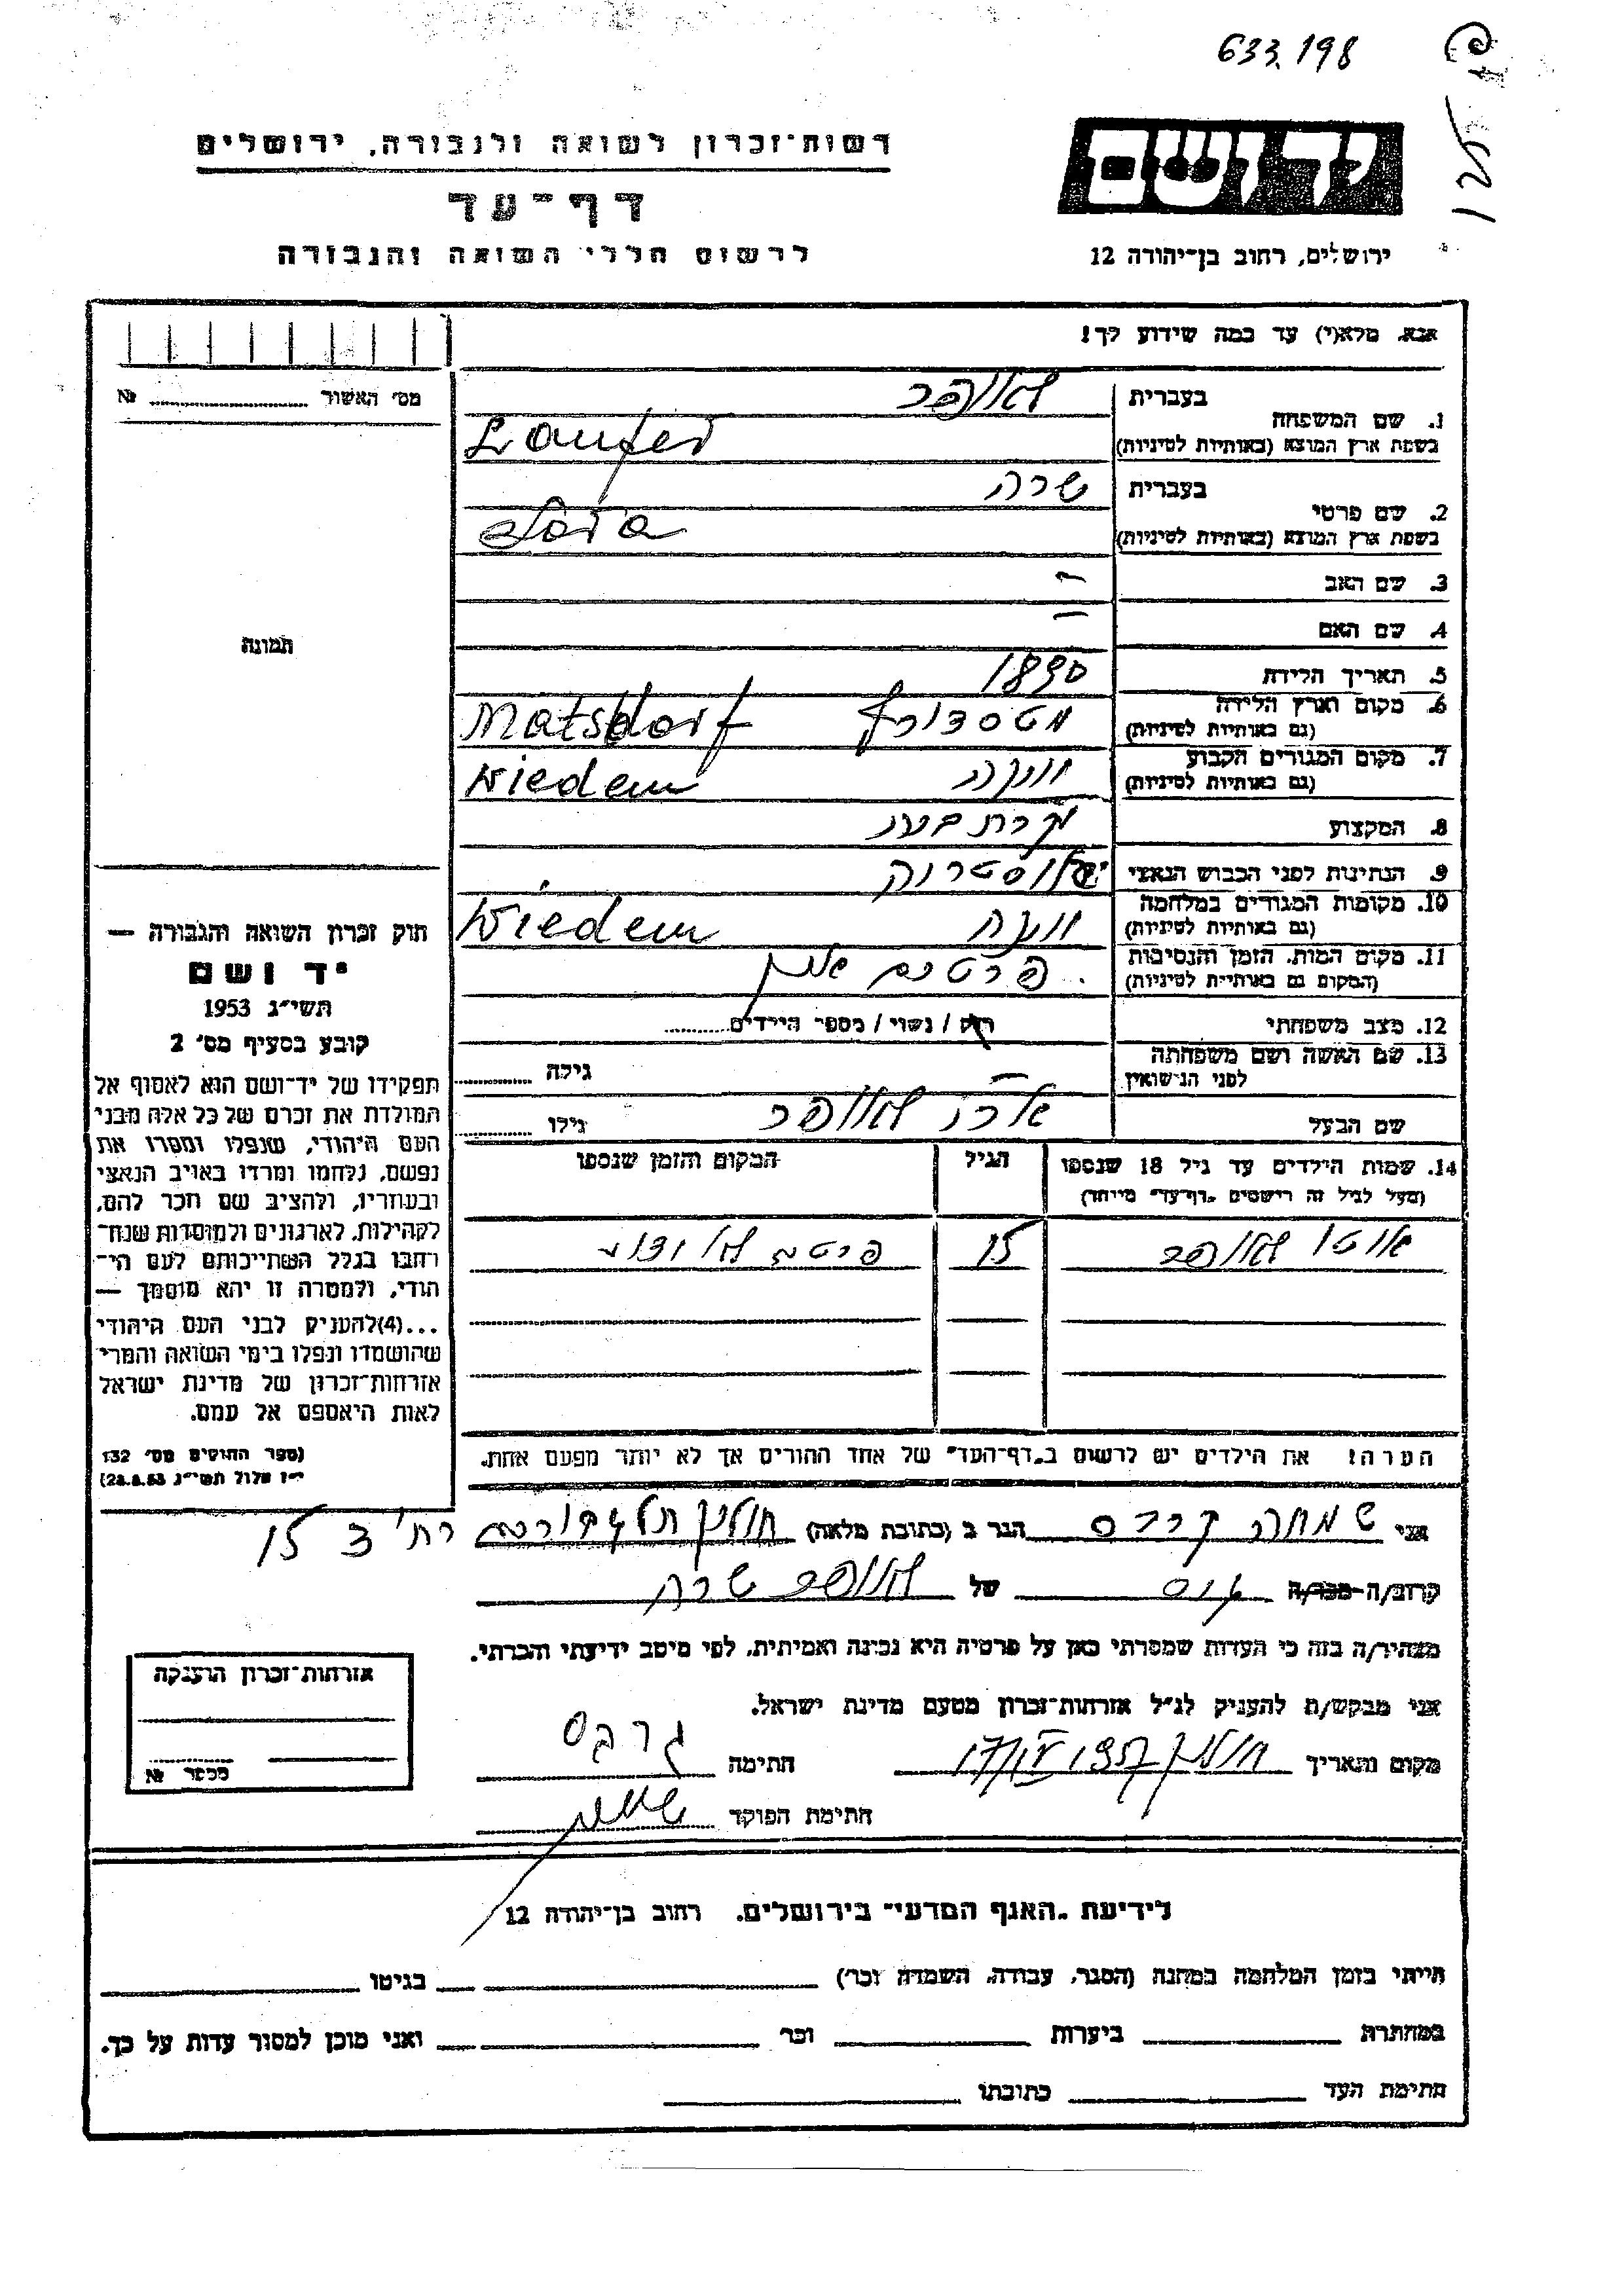 633.198
רשות־זכרון לשואה ולגבורה, ירושלים
דף־עד
לרשום חללי השואה והגבורה
יד ושם
ירושלים, רחוב בן־יהודה 12
אנא, מלא(י) עד כמה שידוע לך!
מס׳ האשור № 
תמונה
1. שם המשפחה
בעברית לאופר
בשפת ארץ המוצא (באותיות לטיניות) Laufer
2. שם פרטי
בעברית שרה
בשפת ארץ המוצא (באותיות לטיניות) Sara
3. שם האב –
4. שם האם –
5. תאריך הלידה 1890
6. מקום וארץ הלידה
(גם באותיות לטיניות) מטסדורף Matsdorf
7. מקום המגורים הקבוע
(גם באותיות לטיניות) וינה Wiedem
8. המקצוע עקרת בית
9. הנתינות לפני הכבוש הנאצי
10. מקומות המגורים במלחמה
(גם באותיות לטיניות) וינה Wiedem
11. מקום המות, הזמן והנסיבות
(המקום גם באותיות לטיניות) פרטים אין
12. מצב משפחתי רווק / נשוי / מספר הילדים
13. שם האשה ושם משפחתה
לפני הנישואין – גילה
שם הבעל לאופר גילו
14. שמות הילדים עד גיל 18 שנספו
(מעל לגיל זה רושמים „דף־עד” מיוחד)
הגיל
המקום והזמן שנספו
אוטו לאופר 15 פרטים לא ידוע
הערה: את הילדים יש לרשום ב„דף־העד” של אחד ההורים אך לא יותר מפעם אחת.
חוק זכרון השואה והגבורה —
יד ושם
תשי״ג 1953
קובע בסעיף מס׳ 2
תפקידו של יד־ושם הוא לאסוף אל
המולדת את זכרם של כל אלה מבני
העם היהודי, שנפלו ומסרו את
נפשם, נלחמו ומרדו באויב הנאצי
ובעוזריו, ולהציב שם וזכר להם,
לקהילות, לארגונים ולמוסדות שנח־
רבו בגלל השתייכותם לעם הי־
הודי, ולמטרה זו יהא מוסמך —
...(4) להעניק לבני העם היהודי
שהושמדו ונפלו בימי השואה והמרי
אזרחות־זכרון של מדינת ישראל
לאות היאספם אל עמם.
(ספר החוקים מס׳ 132
י״ז אלול תשי״ג 28.8.53)
אני שמחה הגר ב (כתובת מלאה) חולון רח׳ 15
קרוב/ה מכר/ה של לאופר שרה
מצהיר/ה בזה כי העדות שמסרתי כאן על פרטיה היא נכונה ואמיתית, לפי מיטב ידיעתי והכרתי.
אני מבקש/ת להעניק לנ״ל אזרחות־זכרון מטעם מדינת ישראל.
מקום ותאריך חולון חתימה
חתימת הפוקד
אזרחות־זכרון הוענקה
מספר №
לידיעת „האגף המדעי” בירושלים, רחוב בן־יהודה 12
הייתי בזמן המלחמה במחנה (הסגר, עבודה, השמדה וכו׳) בגיטו
במחתרת ביערות וכו׳ ואני מוכן למסור עדות על כך.
חתימת העד כתובתו